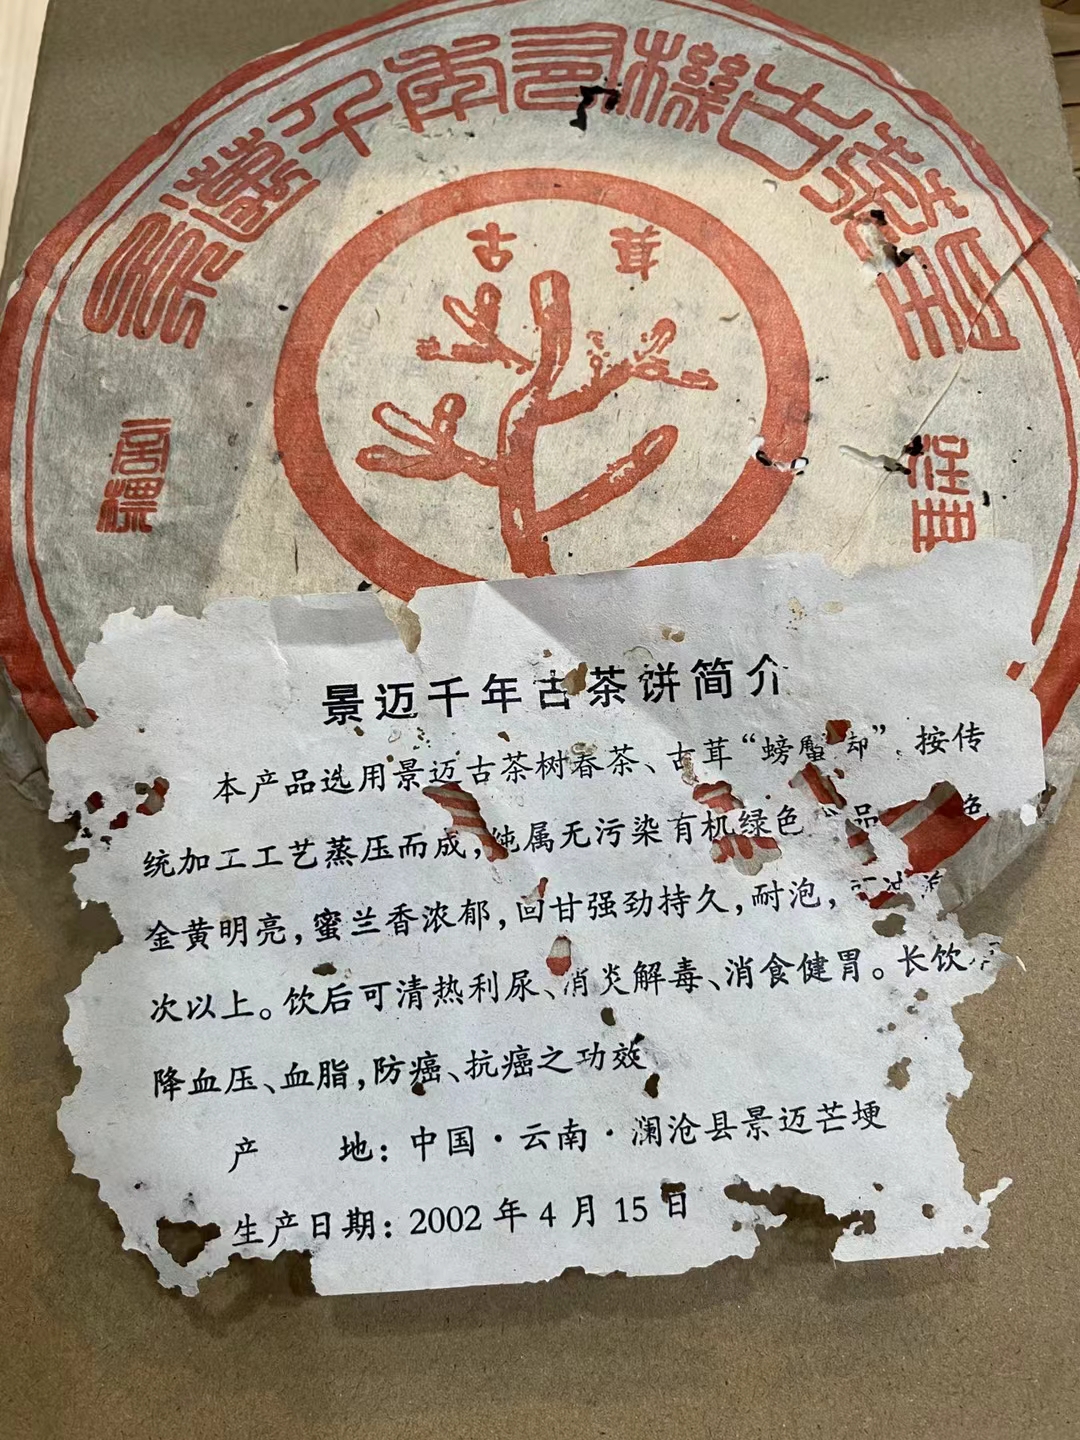 景邁千年有機古茶
古 茸
商標
註冊
景迈千年古茶饼简介
本产品选用景迈古茶树春茶、古茸“螃蟹却”,按传
统加工工艺蒸压而成,纯属无污染有机绿色 品 色
金黄明亮,蜜兰香浓郁,回甘强劲持久,耐泡,
次以上。饮后可清热利尿、消炎解毒、消食健胃。长饮
降血压、血脂,防癌、抗癌之功效
产 地:中国·云南·澜沧县景迈芒埂
生产日期:2002 年 4 月 15 日